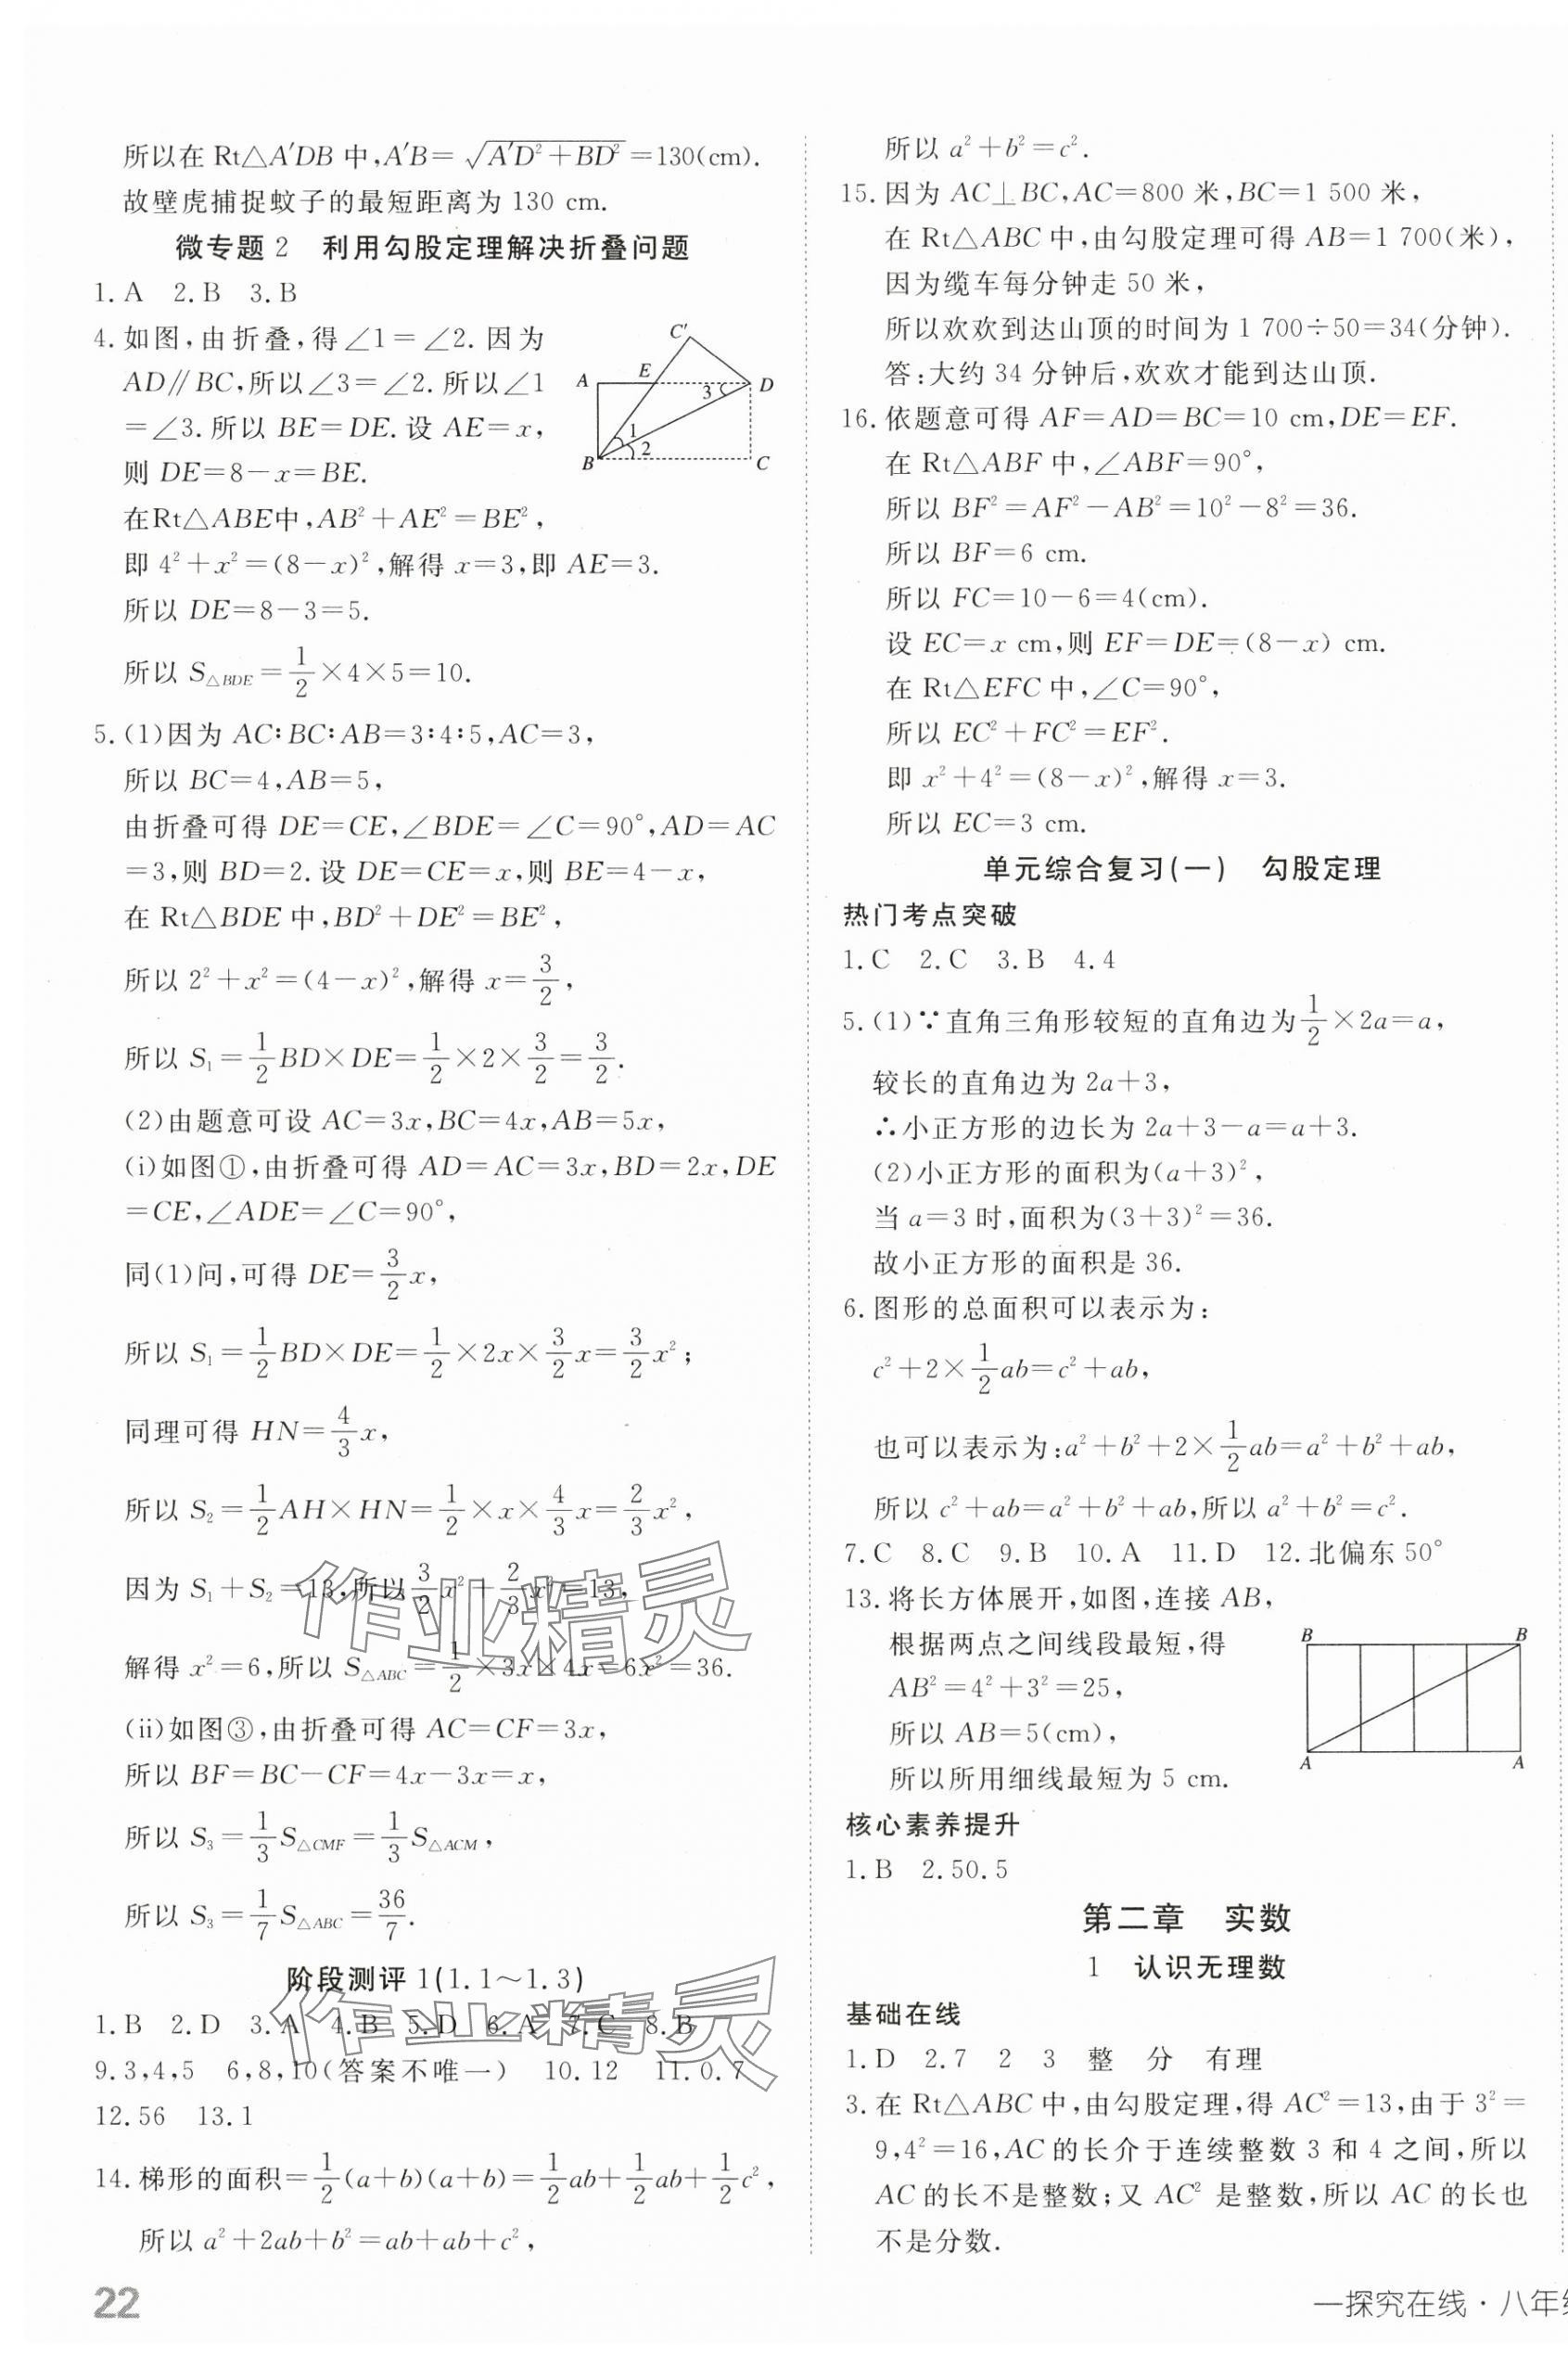 所以在 Rt△A′DB 中,A′B=√(A′D²+BD²)=130(cm).
故壁虎捕捉蚊子的最短距离为 130 cm.
微专题 2　利用勾股定理解决折叠问题
1. A　2. B　3. B
4. 如图,由折叠,得∠1=∠2. 因为
AD∥BC,所以∠3=∠2. 所以∠1
=∠3. 所以 BE=DE. 设 AE=x,
则 DE=8-x=BE.
在Rt△ABE中,AB²+AE²=BE²,
即 4²+x²=(8-x)²,解得 x=3,即 AE=3.
所以 DE=8-3=5.
所以 S△BDE=1/2×4×5=10.
C′
A
E
D
3
1
2
B
C
5. (1)因为 AC∶BC∶AB=3∶4∶5,AC=3,
所以 BC=4,AB=5,
由折叠可得 DE=CE,∠BDE=∠C=90°,AD=AC
=3,则 BD=2. 设 DE=CE=x,则 BE=4-x,
在 Rt△BDE 中,BD²+DE²=BE²,
所以 2²+x²=(4-x)²,解得 x=3/2,
所以 S₁=1/2BD×DE=1/2×2×3/2=3/2.
(2)由题意可设 AC=3x,BC=4x,AB=5x,
(i)如图①,由折叠可得 AD=AC=3x,BD=2x,DE
=CE,∠ADE=∠C=90°,
同(1)问,可得 DE=3/2x,
所以 S₁=1/2BD×DE=1/2×2x×3/2x=3/2x²;
同理可得 HN=4/3x,
所以 S₂=1/2AH×HN=1/2×x×4/3x=2/3x²,
因为 S₁+S₂=13,所以3/2x²+2/3x²=13,
解得 x²=6,所以 S△ABC=1/2×3x×4x=6x²=36.
(ii)如图③,由折叠可得 AC=CF=3x,
所以 BF=BC-CF=4x-3x=x,
所以 S₃=1/3S△CMF=1/3S△ACM,
所以 S₃=1/7S△ABC=36/7.
阶段测评 1(1.1～1.3)
1. B　2. D　3. A　4. B　5. D　6. A　7. C　8. B
9. 3,4,5　6,8,10(答案不唯一)　10. 12　11. 0.7
12. 56　13. 1
14. 梯形的面积=1/2(a+b)(a+b)=1/2ab+1/2ab+1/2c²,
所以 a²+2ab+b²=ab+ab+c²,
22
所以 a²+b²=c².
15. 因为 AC⊥BC,AC=800 米,BC=1 500 米,
在 Rt△ABC 中,由勾股定理可得 AB=1 700(米),
因为缆车每分钟走 50 米,
所以欢欢到达山顶的时间为 1 700÷50=34(分钟).
答:大约 34 分钟后,欢欢才能到达山顶.
16. 依题意可得 AF=AD=BC=10 cm,DE=EF.
在 Rt△ABF 中,∠ABF=90°,
所以 BF²=AF²-AB²=10²-8²=36.
所以 BF=6 cm.
所以 FC=10-6=4(cm).
设 EC=x cm,则 EF=DE=(8-x) cm.
在 Rt△EFC 中,∠C=90°,
所以 EC²+FC²=EF².
即 x²+4²=(8-x)²,解得 x=3.
所以 EC=3 cm.
单元综合复习(一)　勾股定理
热门考点突破
1. C　2. C　3. B　4. 4
5. (1)∵直角三角形较短的直角边为1/2×2a=a,
较长的直角边为 2a+3,
∴小正方形的边长为 2a+3-a=a+3.
(2)小正方形的面积为(a+3)²,
当 a=3 时,面积为(3+3)²=36.
故小正方形的面积是 36.
6. 图形的总面积可以表示为:
c²+2×1/2ab=c²+ab,
也可以表示为:a²+b²+2×1/2ab=a²+b²+ab,
所以 c²+ab=a²+b²+ab,所以 a²+b²=c².
7. C　8. C　9. B　10. A　11. D　12. 北偏东 50°
13. 将长方体展开,如图,连接 AB,
根据两点之间线段最短,得
AB²=4²+3²=25,
所以 AB=5(cm),
所以所用细线最短为 5 cm.
B
B
A
A
核心素养提升
1. B　2. 50.5
第二章　实数
1　认识无理数
基础在线
1. D　2. 7　2　3　整　分　有理
3. 在 Rt△ABC 中,由勾股定理,得 AC²=13,由于 3²=
9,4²=16,AC 的长介于连续整数 3 和 4 之间,所以
AC 的长不是整数;又 AC² 是整数,所以 AC 的长也
不是分数.
一探究在线·八年
作业精灵
作业精灵